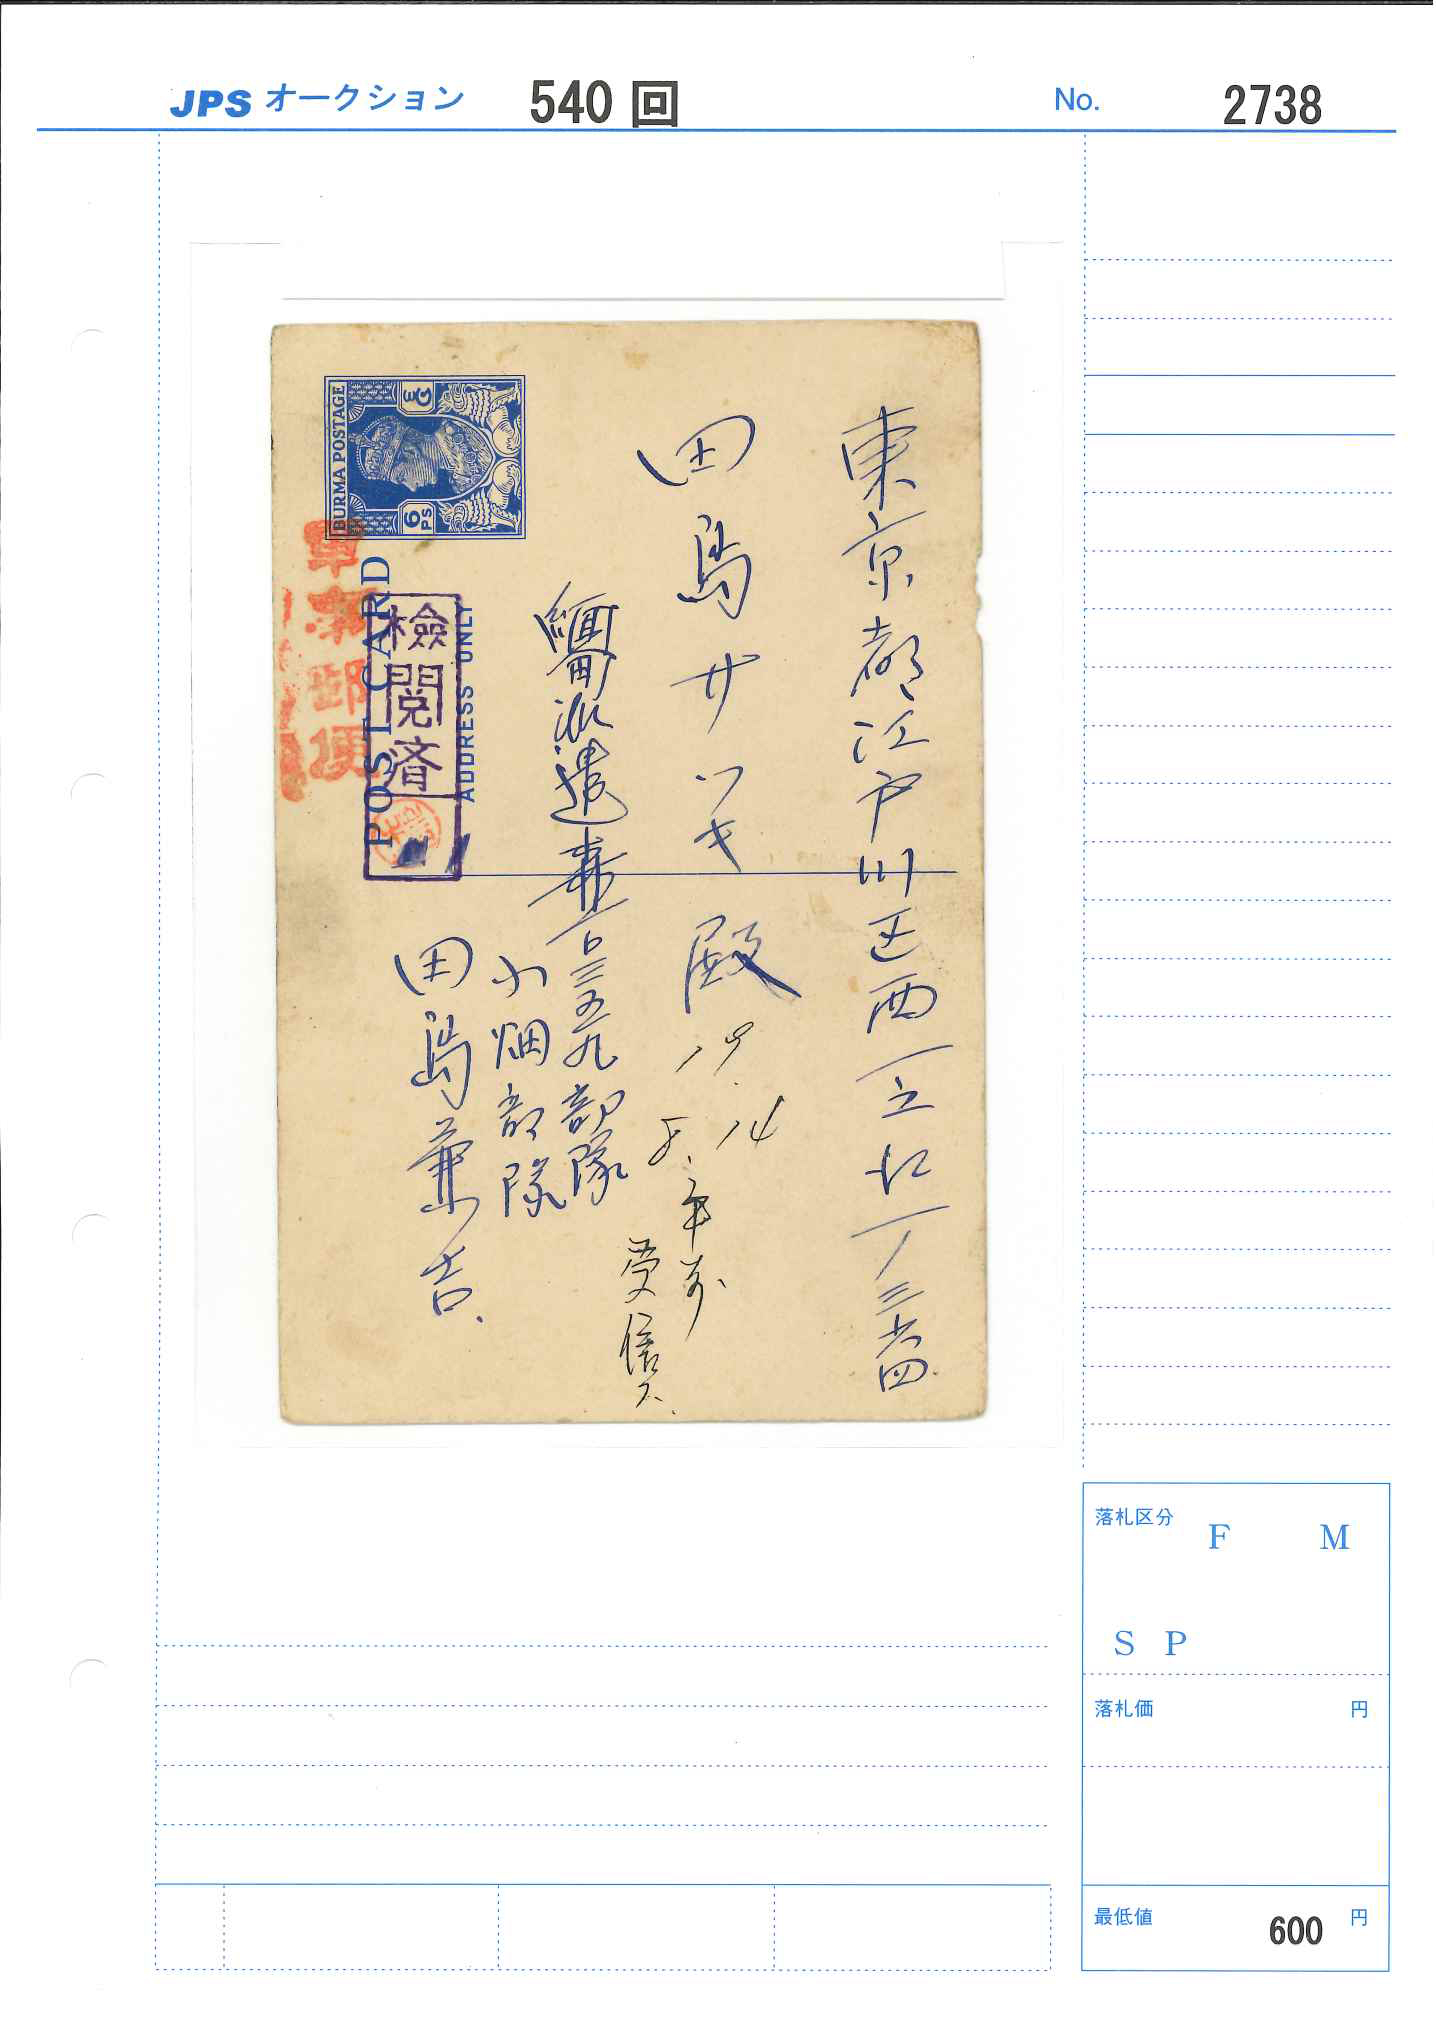 JPS オークション 540 回 No. 2738
BURMA POSTAGE
6 PS
POST CARD
ADDRESS ONLY
軍事郵便
檢閲済
東京都江戸川区西一之江一ノ三六四
田島サツキ 殿
緬甸派遣森一〇三五九部隊
小畑部隊
田島兼吉.
19.
5. 14
午前
受信ス.
落札区分 F M
S P
落札価 円
最低値 600 円